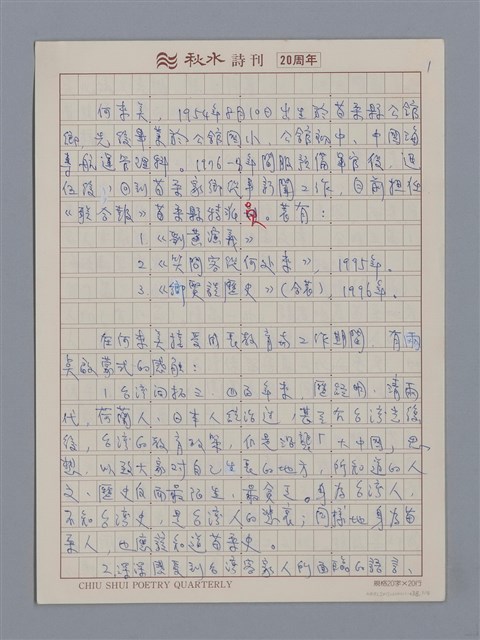 秋水詩刊 20周年
1
何來美，1954年8月10日出生於苗栗縣公館
鄉，先後畢業於公館國小、公館初中、中國海
專航運管理科。1976-8年間服預備軍官役，退
伍後，回到苗栗家鄉從事新聞工作，目前擔任
《聯合報》苗栗縣特派員。著有：
1 《劉黃演義》
2 《笑問客從何处來》，1995年。
3 《鄉賢談歷史》（合著），1996年。
在何來美接受國民教育和工作期間，有兩
矣啟蒙式的感觸：
1 台灣開拓三、四百年來，歷經明、清兩
代，荷蘭人、日本人統治過，甚至在台灣光復
後，台灣的教育政策，仍是灌襲「大中國」思
想，以致大家對自己生長的地方，所知道的人
文、歷史反而最陌生、最貧乏。身為台灣人，
不知台灣史，是台灣人的悲哀；同樣地身為苗
栗人，也應該知道苗栗史。
2 深深感受到台灣客家人所面臨的語言、
CHIU SHUI POETRY QUARTERLY
規格20字×20行